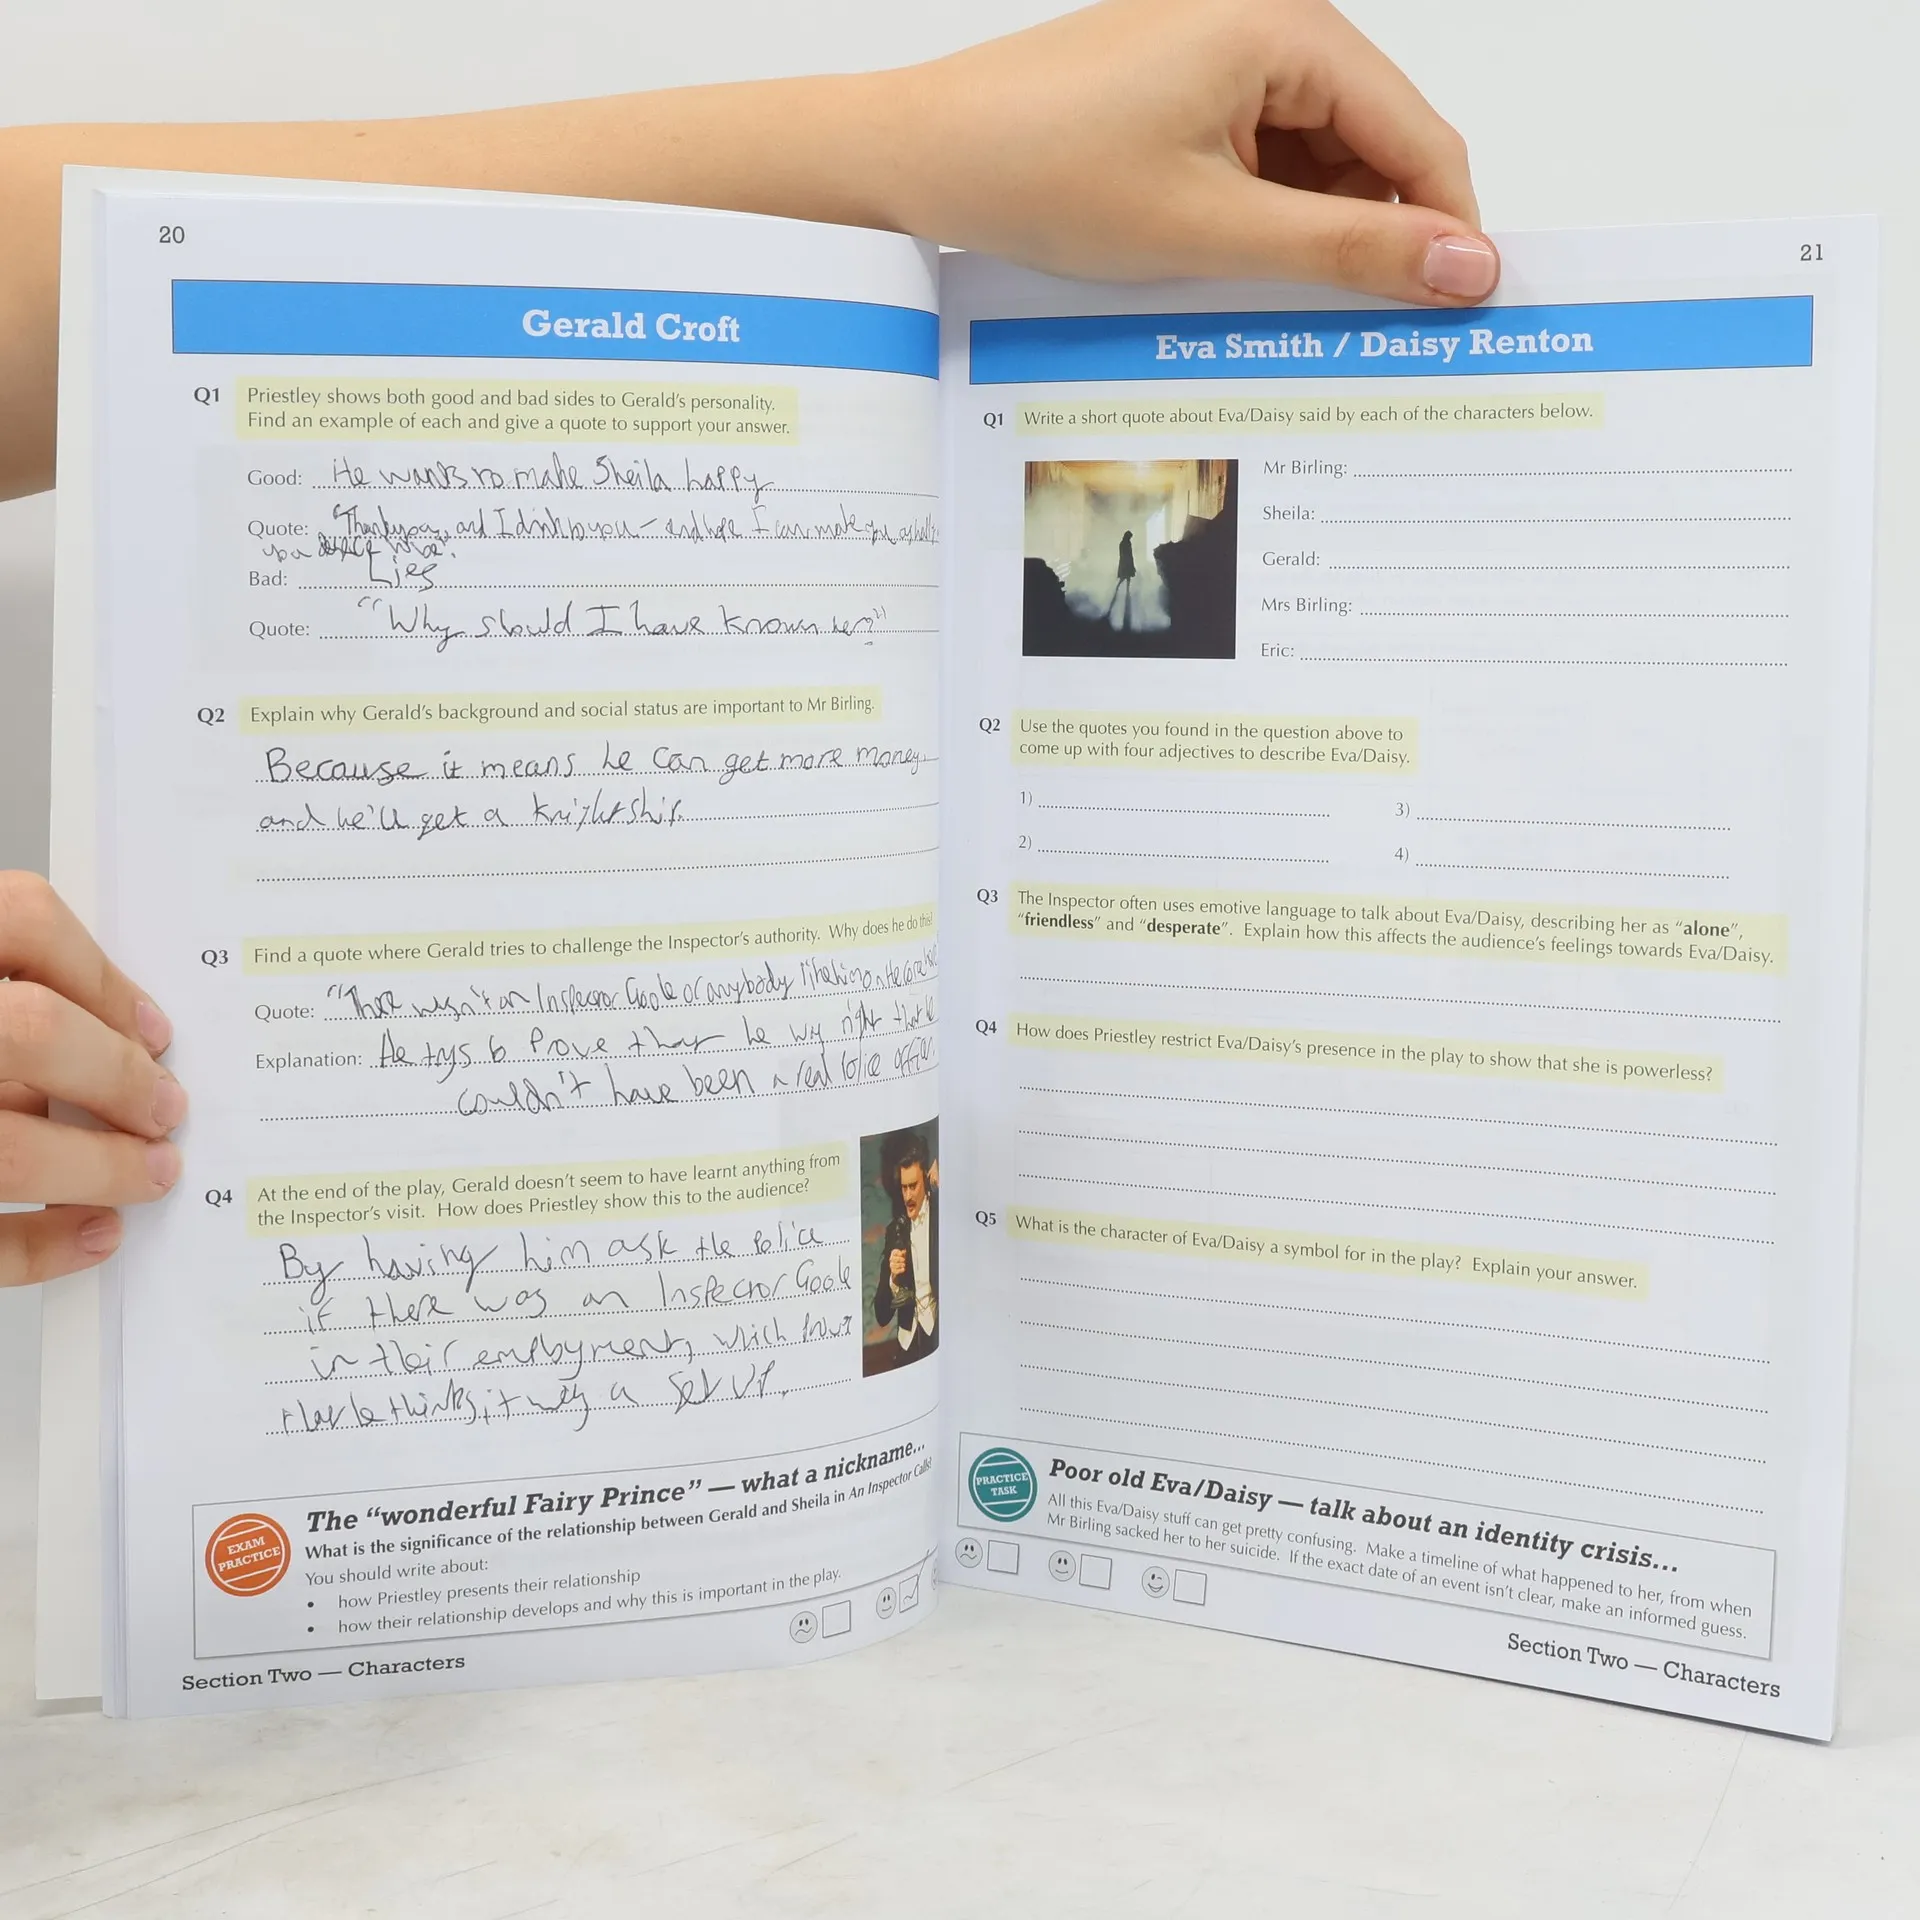 20
Gerald Croft
Q1 Priestley shows both good and bad sides to Gerald's personality.
Find an example of each and give a quote to support your answer.
Good: He wants to make Sheila happy
Quote: "Thankyou, and I drink to you – and hope I can make you as
you
Bad: Lies
Quote: "Why should I have known her?"
Q2 Explain why Gerald's background and social status are important to Mr Birling.
Because it means he can get more money
and he'll get a knightship.
Q3 Find a quote where Gerald tries to challenge the Inspector's authority. Why does he do this?
Quote: "There wasn't an Inspector Goole or anybody like him on the
Explanation: He trys to prove that he was right that he
couldn't have been a real police officer.
Q4 At the end of the play, Gerald doesn't seem to have learnt anything from
the Inspector's visit. How does Priestley show this to the audience?
By having him ask the police
if there was an Inspector Goole
in their employment, which
that he thinks it was a set up.
EXAM PRACTICE
The "wonderful Fairy Prince" — what a nickname...
What is the significance of the relationship between Gerald and Sheila in An Inspector Calls?
You should write about:
• how Priestley presents their relationship
• how their relationship develops and why this is important in the play.
Section Two — Characters
21
Eva Smith / Daisy Renton
Q1 Write a short quote about Eva/Daisy said by each of the characters below.
Mr Birling:
Sheila:
Gerald:
Mrs Birling:
Eric:
Q2 Use the quotes you found in the question above to
come up with four adjectives to describe Eva/Daisy.
1) 3)
2) 4)
Q3 The Inspector often uses emotive language to talk about Eva/Daisy, describing her as "alone",
"friendless" and "desperate". Explain how this affects the audience's feelings towards Eva/Daisy.
Q4 How does Priestley restrict Eva/Daisy's presence in the play to show that she is powerless?
Q5 What is the character of Eva/Daisy a symbol for in the play? Explain your answer.
PRACTICE TASK
Poor old Eva/Daisy — talk about an identity crisis...
All this Eva/Daisy stuff can get pretty confusing. Make a timeline of what happened to her, from when
Mr Birling sacked her to her suicide. If the exact date of an event isn't clear, make an informed guess.
Section Two — Characters